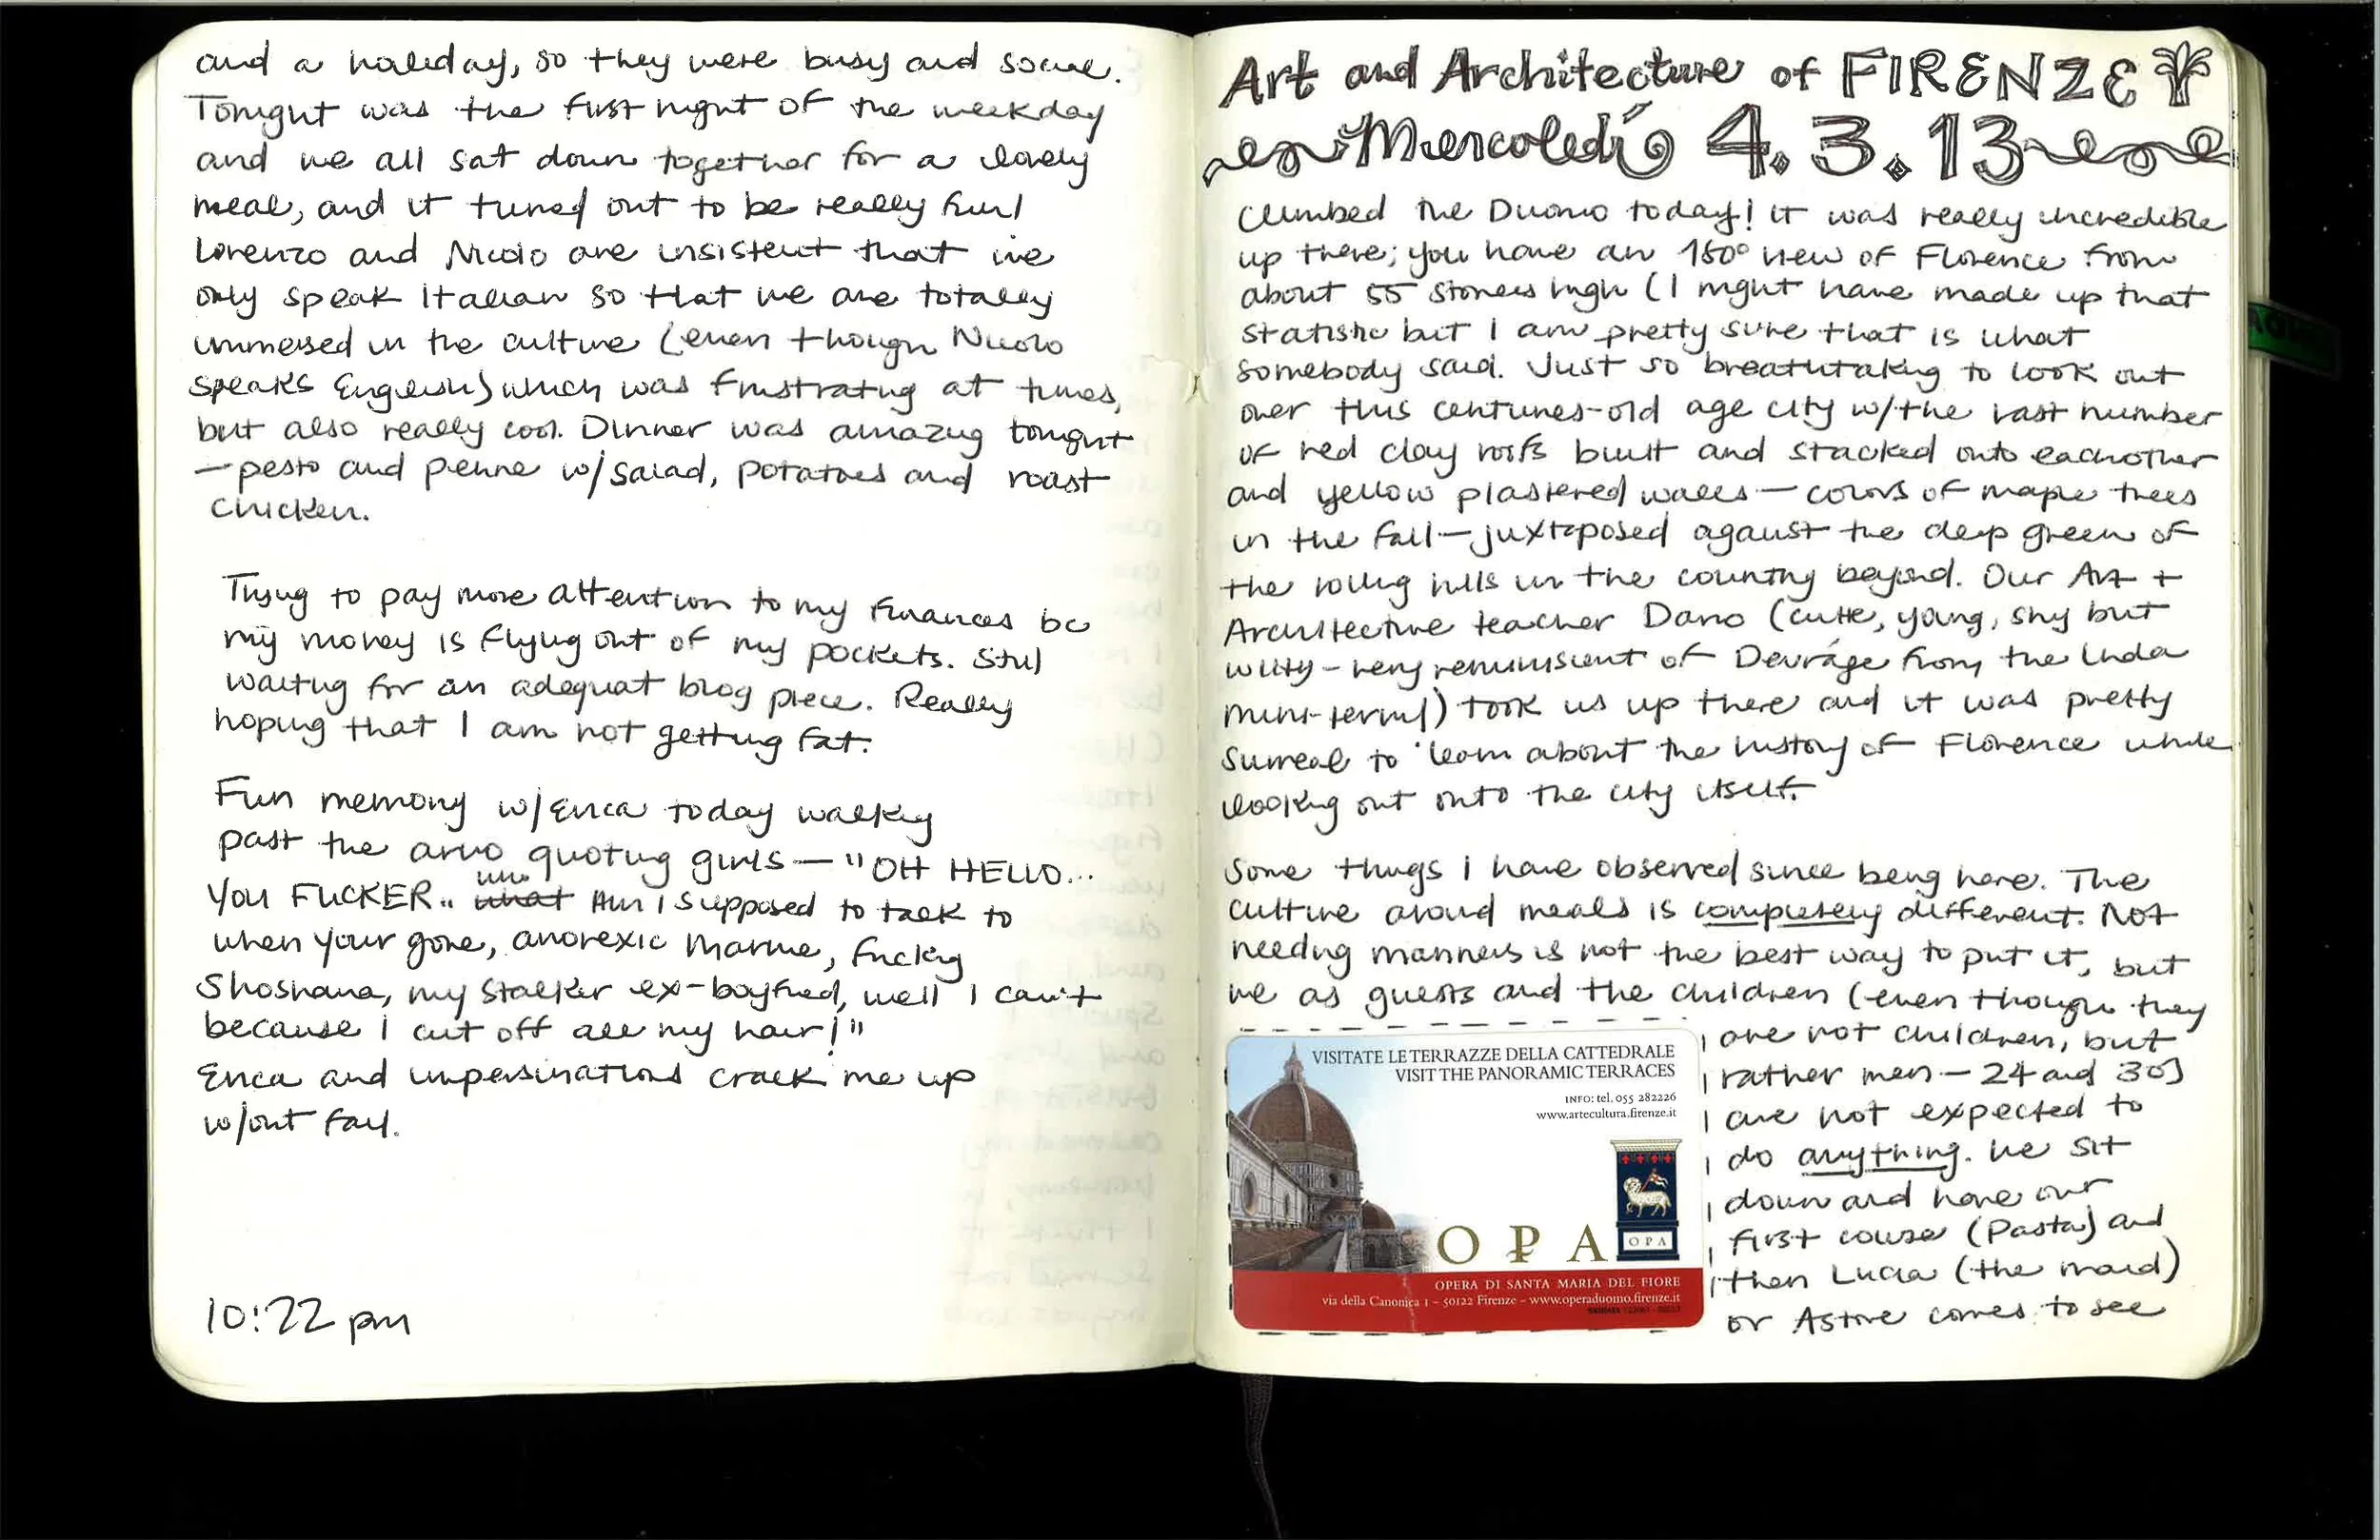 and a holiday, so they were busy and social.
Tonight was the first night of the weekday
and we all sat down together for a lovely
meal, and it tuned out to be really fun!
Lorenzo and Nicolo are insistent that we
only speak Italian so that we are totally
immersed in the culture (even though Nicolo
speaks English) which was frustrating at times,
but also really cool. Dinner was amazing tonight
—pesto and penne w/salad, potatoes and roast
chicken.
Trying to pay more attention to my finances bc
my money is flying out of my pockets. Still
waiting for an adequat blog piece. Really
hoping that I am not getting fat.
Fun memory w/Erica today walking
past the arno quoting girls — "OH HELLO...
YOU FUCKER.. who what Am I supposed to talk to
when your gone, anorexic Marnie, fucking
Shoshana, my stalker ex-boyfried, well I can't
because I cut off all my hair!"
Erica and impersinations crack me up
w/out fail.
10:22 pm
Art and Architecture of FIRENZE
Mercoledí 4.3.13
Climbed the Duomo today! It was really incredible
up there; you have an 180° view of Florence from
about 55 stories high (I might have made up that
statistic but I am pretty sure that is what
somebody said. Just so breathtaking to look out
over this centuries-old age city w/the vast number
of red clay roofs built and stacked onto eachother
and yellow plastered walls — colors of maple trees
in the fall — juxtaposed against the deep green of
the rolling hills in the country beyond. Our Art +
Architecture teacher Dario (cute, young, shy but
witty - very reminiscent of Devrage from the India
mini-term!) took us up there and it was pretty
surreal to learn about the history of Florence while
looking out onto the city itself.
Some things I have observed since being here. The
culture around meals is completely different. Not
needing manners is not the best way to put it, but
we as guests and the children (even though they
are not children, but
rather men — 24 and 30)
are not expected to
do anything. We sit
down and have our
first course (Pasta) and
then Lucia (the maid)
or Astore comes to see
VISITATE LE TERRAZZE DELLA CATTEDRALE
VISIT THE PANORAMIC TERRACES
INFO: tel. 055 282226
www.artecultura.firenze.it
OPA
OPA
OPERA DI SANTA MARIA DEL FIORE
via della Canonica 1 – 50122 Firenze – www.operaduomo.firenze.it